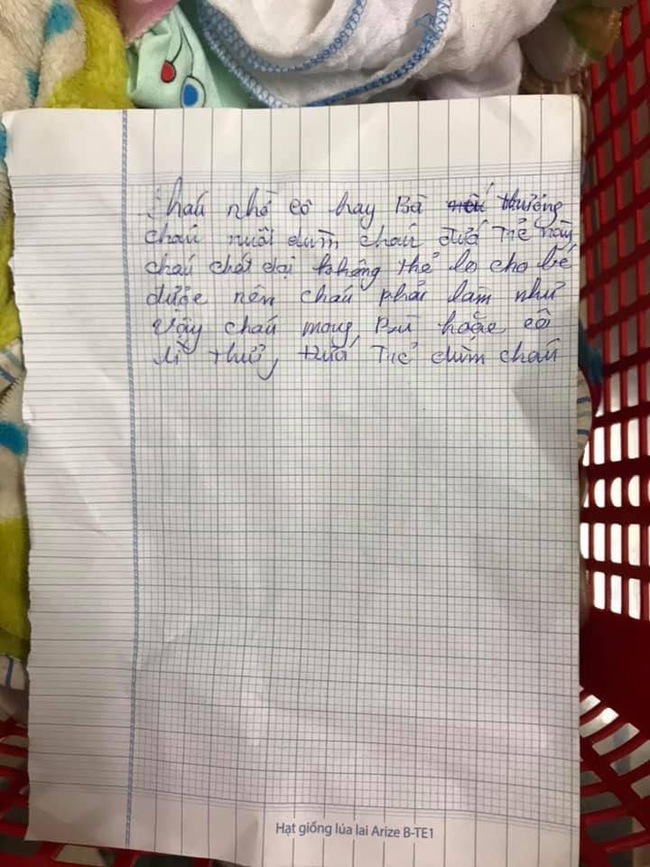 cháu nhờ cô hay Bà thưởng
cháu nuôi dùm cháu đứá Trẻ này
cháu chót dại không thể lo cho bé
được nên cháu phải làm như
vậy cháu mong Bà hoặc cô
thử, đứá Trẻ dùm cháu
Hạt giống lúa lai Arize B-TE1